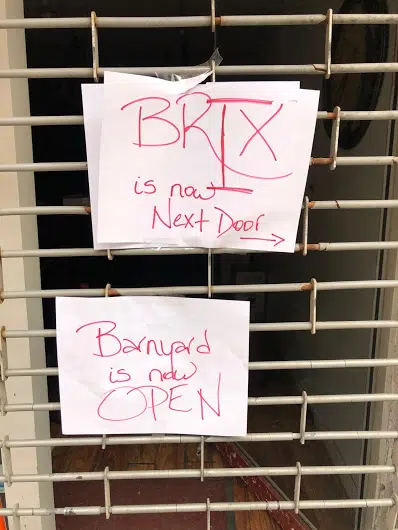 BRIX
is now
Next Door
→
Barnyard
is now
OPEN